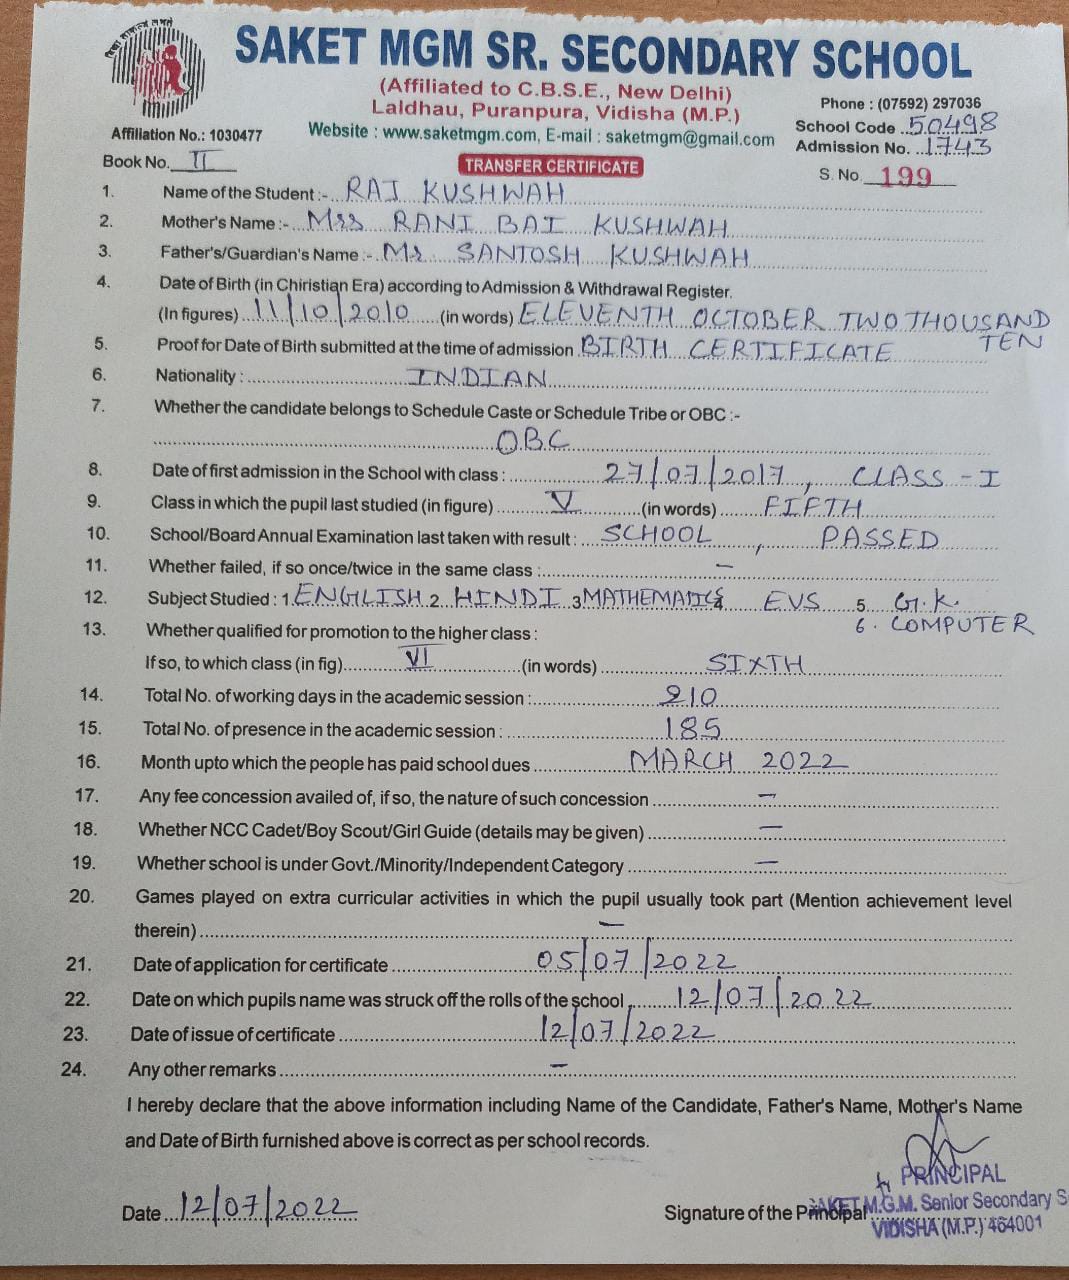 SAKET MGM SR. SECONDARY SCHOOL
(Affiliated to C.B.S.E., New Delhi)
Laldhau, Puranpura, Vidisha (M.P.)
Phone : (07592) 297036
Affiliation No.: 1030477
Website : www.saketmgm.com, E-mail : saketmgm@gmail.com
School Code ..50498
Admission No. ..1743
Book No. II
TRANSFER CERTIFICATE
S. No. 199
1. Name of the Student :- RAJ KUSHWAH
2. Mother's Name :- Mrs RANI BAI KUSHWAH
3. Father's/Guardian's Name :- Mr SANTOSH KUSHWAH
4. Date of Birth (in Chiristian Era) according to Admission & Withdrawal Register.
(In figures) 11/10/2010 (in words) ELEVENTH OCTOBER TWO THOUSAND
TEN
5. Proof for Date of Birth submitted at the time of admission BIRTH CERTIFICATE
6. Nationality : INDIAN
7. Whether the candidate belongs to Schedule Caste or Schedule Tribe or OBC :-
OBC
8. Date of first admission in the School with class : 27/07/2017, CLASS - I
9. Class in which the pupil last studied (in figure) V (in words) FIFTH
10. School/Board Annual Examination last taken with result : SCHOOL, PASSED
11. Whether failed, if so once/twice in the same class : —
12. Subject Studied : 1. ENGLISH 2. HINDI 3 MATHEMATICS 4 EVS 5. G.K.
6. COMPUTER
13. Whether qualified for promotion to the higher class :
If so, to which class (in fig) VI (in words) SIXTH
14. Total No. of working days in the academic session : 210
15. Total No. of presence in the academic session : 185
16. Month upto which the people has paid school dues MARCH 2022
17. Any fee concession availed of, if so, the nature of such concession —
18. Whether NCC Cadet/Boy Scout/Girl Guide (details may be given) —
19. Whether school is under Govt./Minority/Independent Category —
20. Games played on extra curricular activities in which the pupil usually took part (Mention achievement level
therein) —
21. Date of application for certificate 05/07/2022
22. Date on which pupils name was struck off the rolls of the school 12/07/2022
23. Date of issue of certificate 12/07/2022
24. Any other remarks —
I hereby declare that the above information including Name of the Candidate, Father's Name, Mother's Name
and Date of Birth furnished above is correct as per school records.
PRINCIPAL
Date 12/07/2022
Signature of the Principal
SAKET M.G.M. Senior Secondary S
VIDISHA (M.P.) 464001